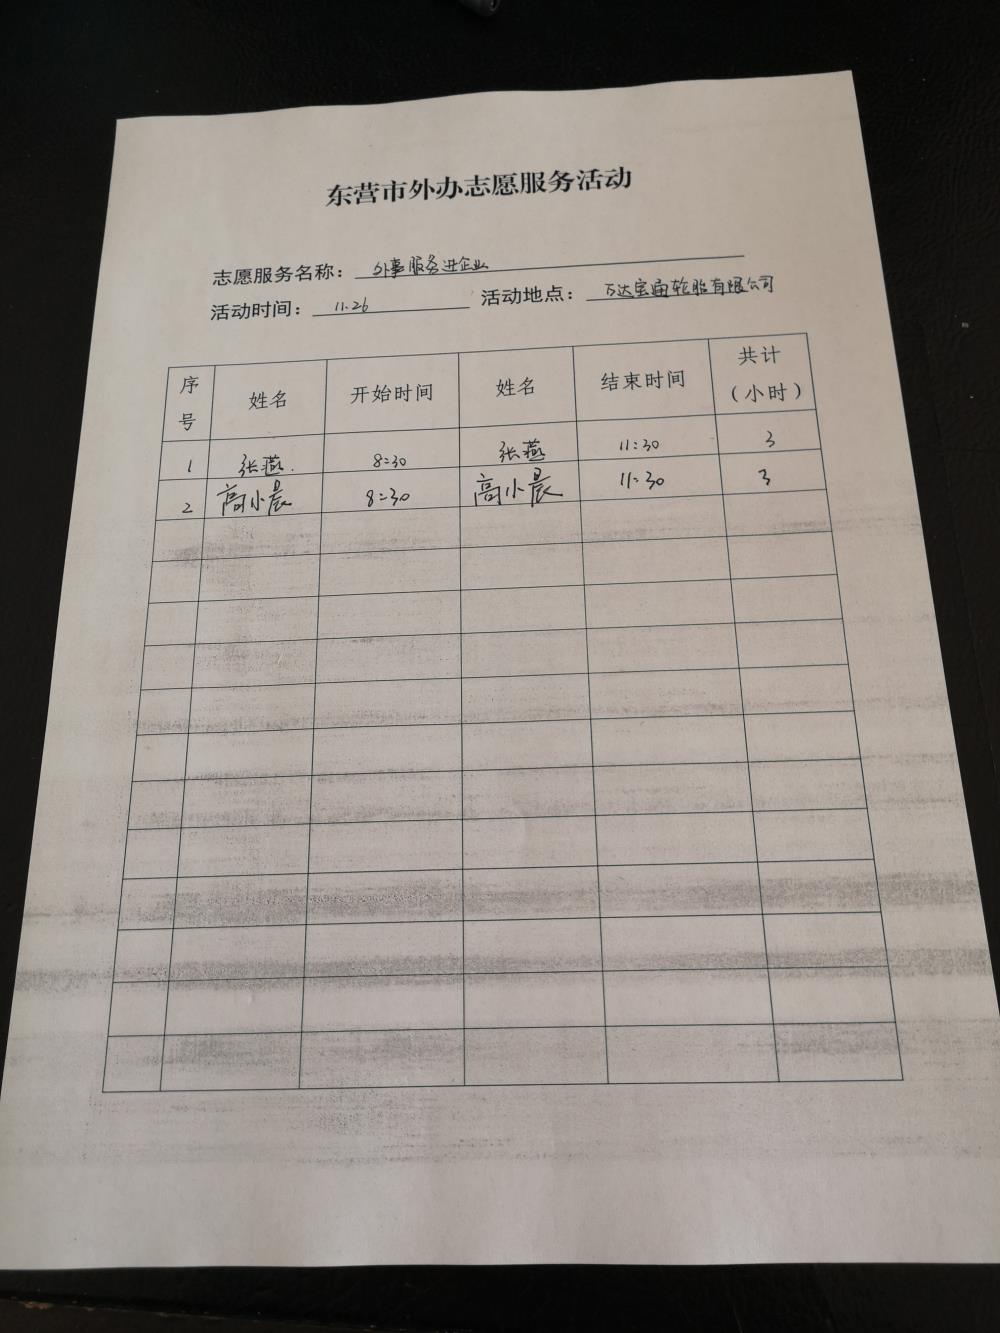 东营市外办志愿服务活动
志愿服务名称：外事服务进企业
活动时间：11.26 活动地点：万达宝通轮胎有限公司
序号 姓名 开始时间 姓名 结束时间 共计（小时）
1 张燕 8:30 张燕 11:30 3
2 高小晨 8:30 高小晨 11:30 3